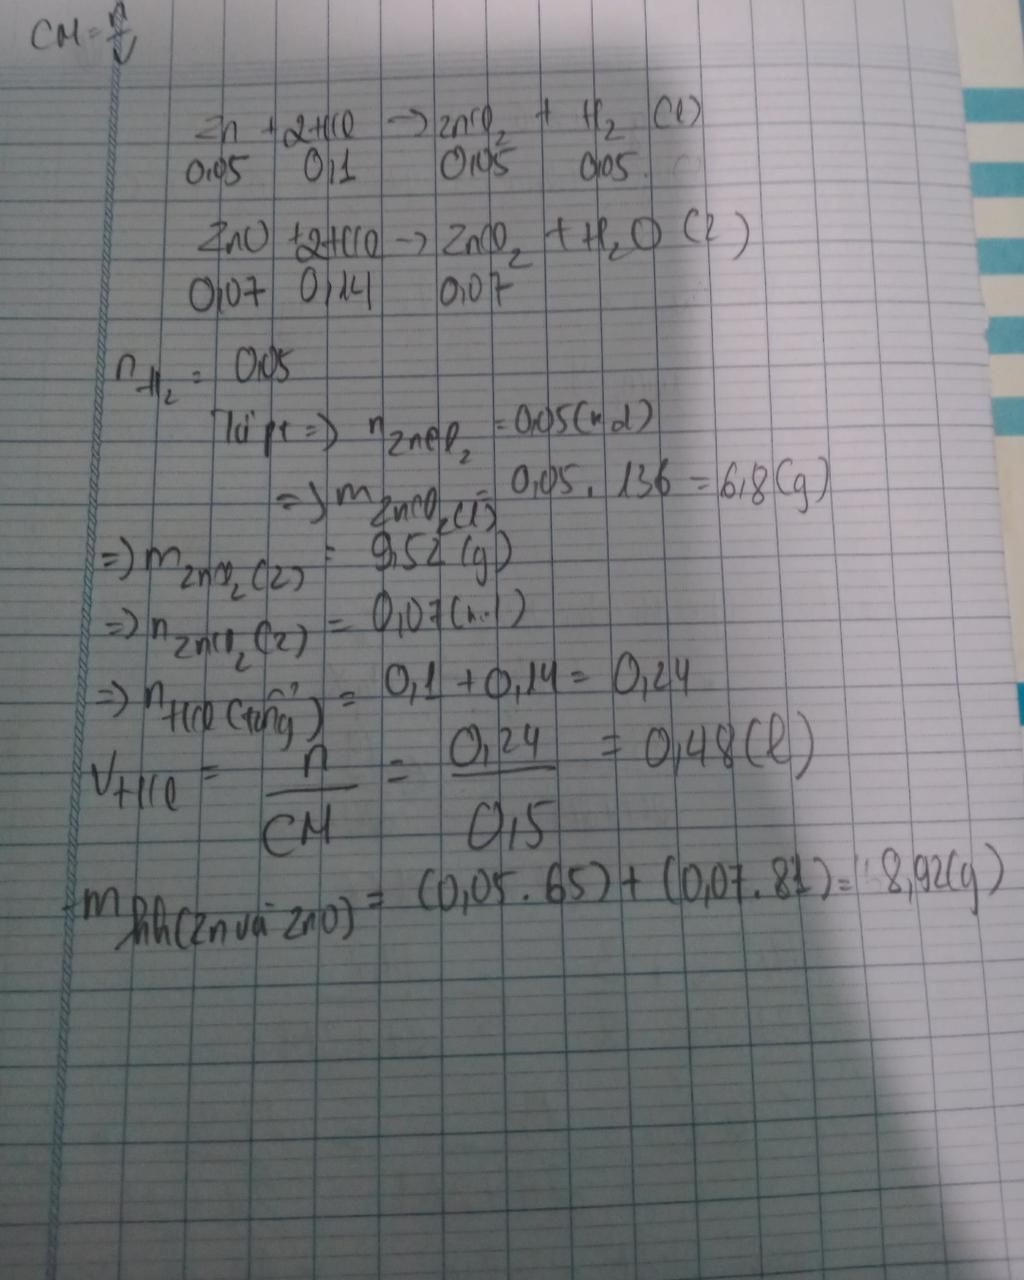 CM = n/V
Zn + 2HCl → ZnCl₂ + H₂ (1)
0,05 0,1 0,05 0,05
ZnO + 2HCl → ZnCl₂ + H₂O (2)
0,07 0,14 0,07
n H₂ = 0,05
Từ pt => n ZnCl₂ = 0,05 (mol)
=> m ZnCl₂ (1) = 0,05 . 136 = 6,8 (g)
=> m ZnCl₂ (2) = 9,52 (g)
=> n ZnCl₂ (2) = 0,07 (mol)
=> n HCl (tổng) = 0,1 + 0,14 = 0,24
V HCl = n/CM = 0,24/0,5 = 0,48 (l)
m hh (Zn và ZnO) = (0,05 . 65) + (0,07 . 81) = 8,92 (g)